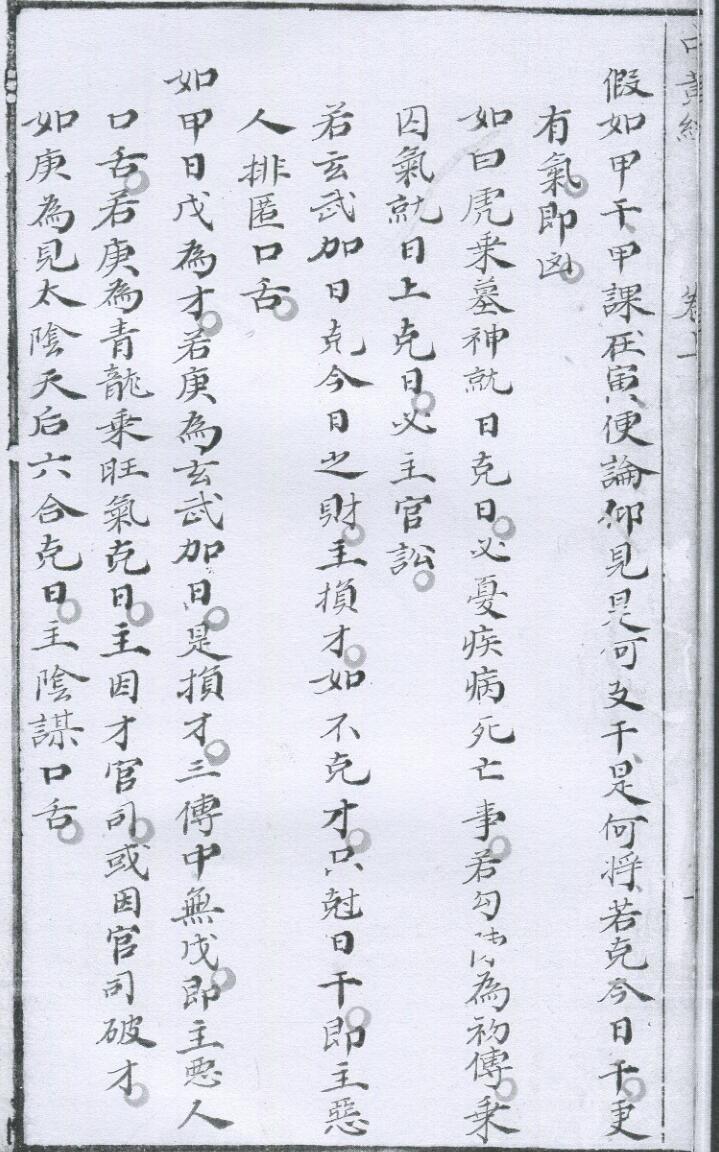 假如甲干甲課在寅便論仰見是何支干是何將若克今日干更
有氣即凶
如曰虎乗墓神就日克日必憂疾病死亡事若勾陳為初傳乗
囚氣就日上克日必主官訟
若玄武加日克今日之財主損才如不克才只尅日干即主惡
人排匿口舌
如甲日戊為才若庚為玄武加日是損才三傳中無戊即主惡人
口舌若庚為青龍乗旺氣克日主因才官司或因官司破才
如庚為見太陰天后六合克日主陰謀口舌